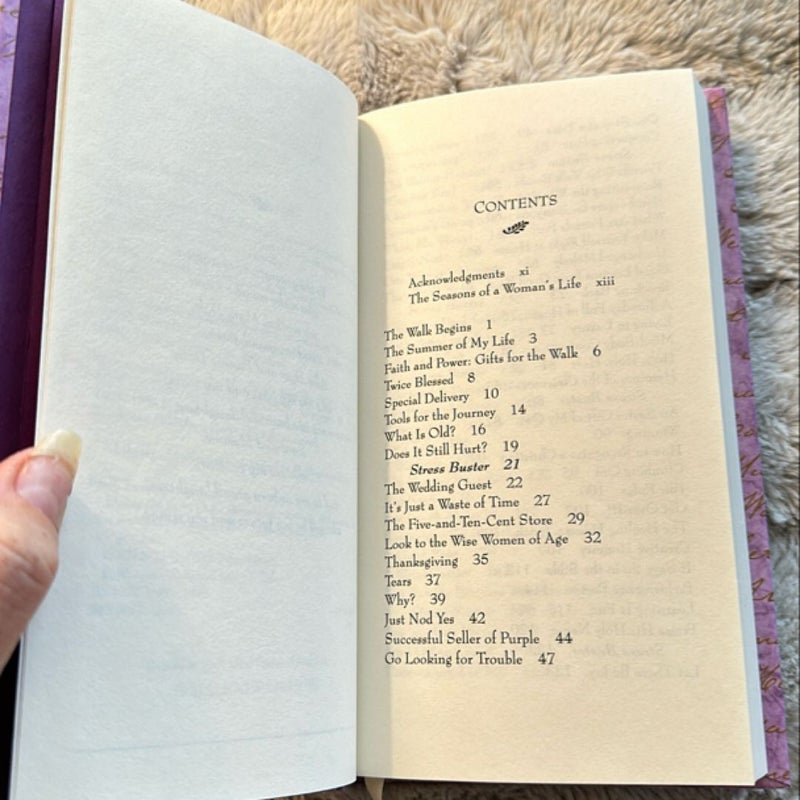 CONTENTS
Acknowledgments xi
The Seasons of a Woman's Life xiii
The Walk Begins 1
The Summer of My Life 3
Faith and Power: Gifts for the Walk 6
Twice Blessed 8
Special Delivery 10
Tools for the Journey 14
What Is Old? 16
Does It Still Hurt? 19
Stress Buster 21
The Wedding Guest 22
It's Just a Waste of Time 27
The Five-and-Ten-Cent Store 29
Look to the Wise Women of Age 32
Thanksgiving 35
Tears 37
Why? 39
Just Nod Yes 42
Successful Seller of Purple 44
Go Looking for Trouble 47